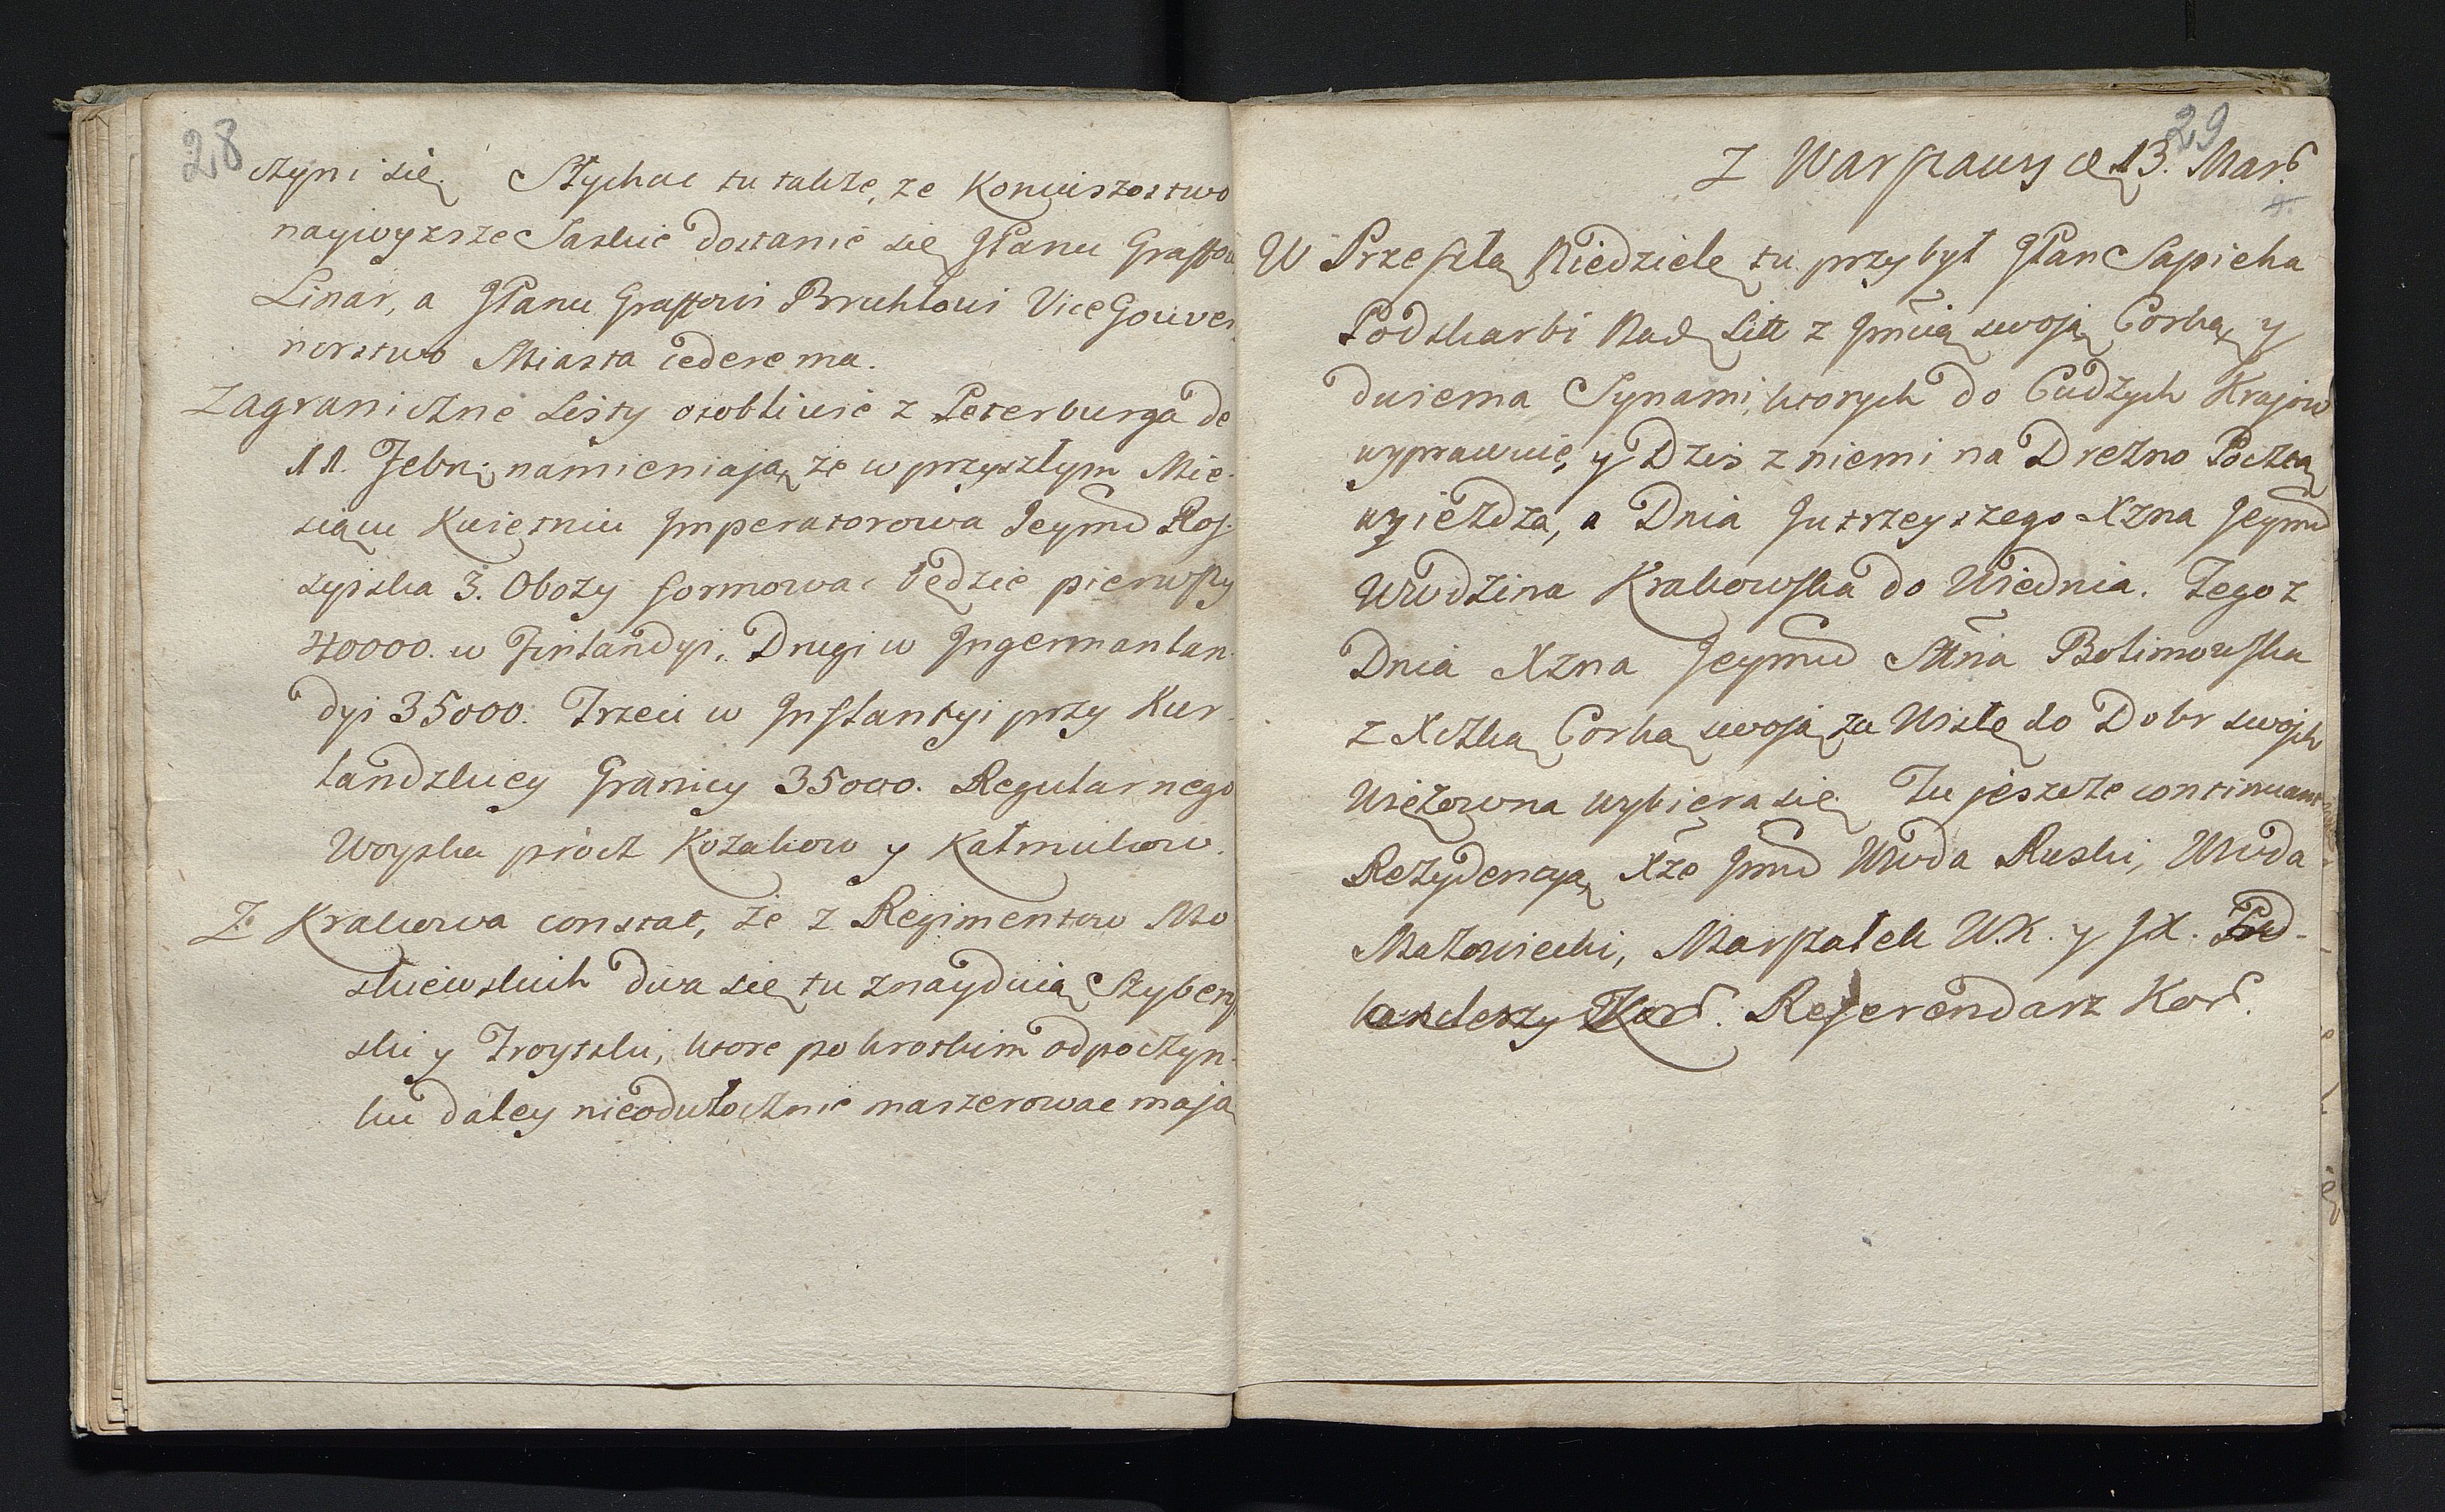 28
czyni się. Słychac tu takze, ze Koniuszostwo
naywyzsze Saskie dostanie się JPanu Graffowi
Linar, a JPanu Graffowi Bruhlowi Vice Gouver
norstwo Miasta
Zagraniczne Listy osobliwie z Peterburga de
11. Febr: namieniaią, ze w przyszłym Mie-
siącu Kwietniu Imperatorowa Jeymć Ros-
syiska 3. Obozy formowac będzie pierwszy
40000. w Finlandyi. Drugi w Ingermanlan-
dyi 35000. Trzeci w Inflantyi przy Kur-
landzkiey Granicy 35000. Regularnego
Woyska procz Kozakow y Kałmukow.
Z Krakowa constat, że z Regimentow Mo
skiewskich dwa się tu znayduią Szybery
ski y Troytski, ktore po krotkim odpoczyn-
ku daley nieodwłocznie maszerowac maią
29
Z Warszawy d 13. Mart.
W Przeszłą Niedzielę tu przybył JPan Sapieha
Podskarbi Nad Litt z Jmcią swoią Corką, y
dwiema Synami, ktorych do Cudzych Kraiow
wyprawuie, y Dzis z niemi na Drezno Pocztą
wyiezdza, a Dnia Jutrzeyszego Xzna Jeymć
Wwdzina Krakowska do Wiednia. Tegoz
Dnia Xzna Jeymć Sttna Bolimowska
z Xczką Corką swoią za Wisłę do Dobr swoich
Wiązowna wybiera się. Tu jeszcze continuant
Rezydencyą Xze Jmć Wwda Ruski, Wwda
Mazowiecki, Marszałek W.K. y JX. Pod-
kanclerzy Kor. Referendarz Kor.